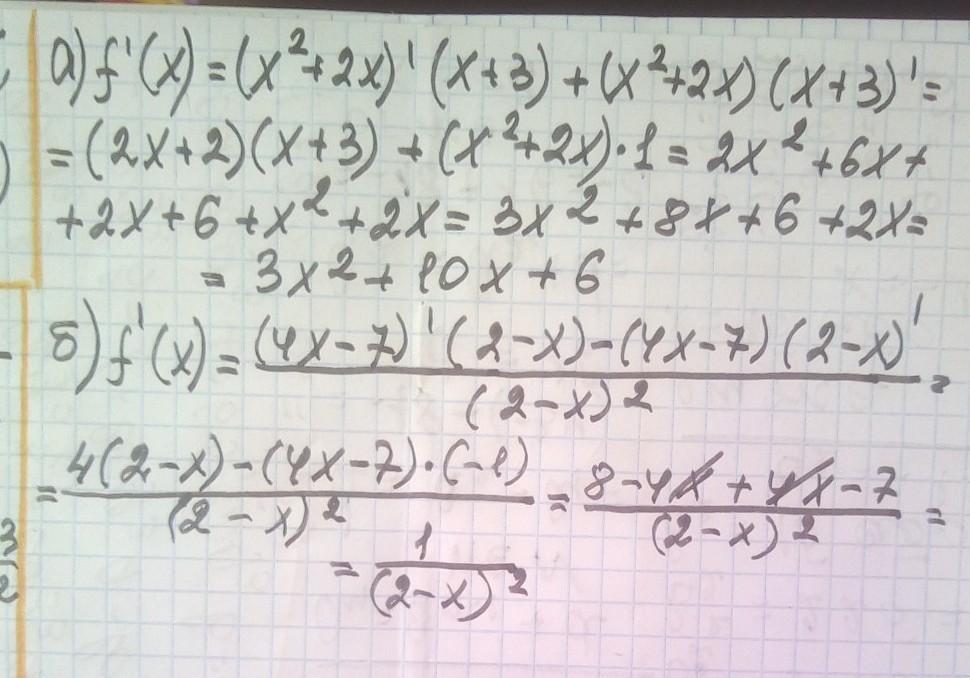 а) f'(x) = (x²+2x)' (x+3) + (x²+2x) (x+3)' =
= (2x+2)(x+3) + (x²+2x)·1 = 2x² + 6x +
+ 2x + 6 + x² + 2x = 3x² + 8x + 6 + 2x =
= 3x² + 10x + 6
б) f'(x) = (4x-7)' (2-x) - (4x-7) (2-x)' / (2-x)² =
= 4(2-x) - (4x-7)·(-1) / (2-x)² = 8-4x + 4x-7 / (2-x)² =
= 1 / (2-x)²
3/2